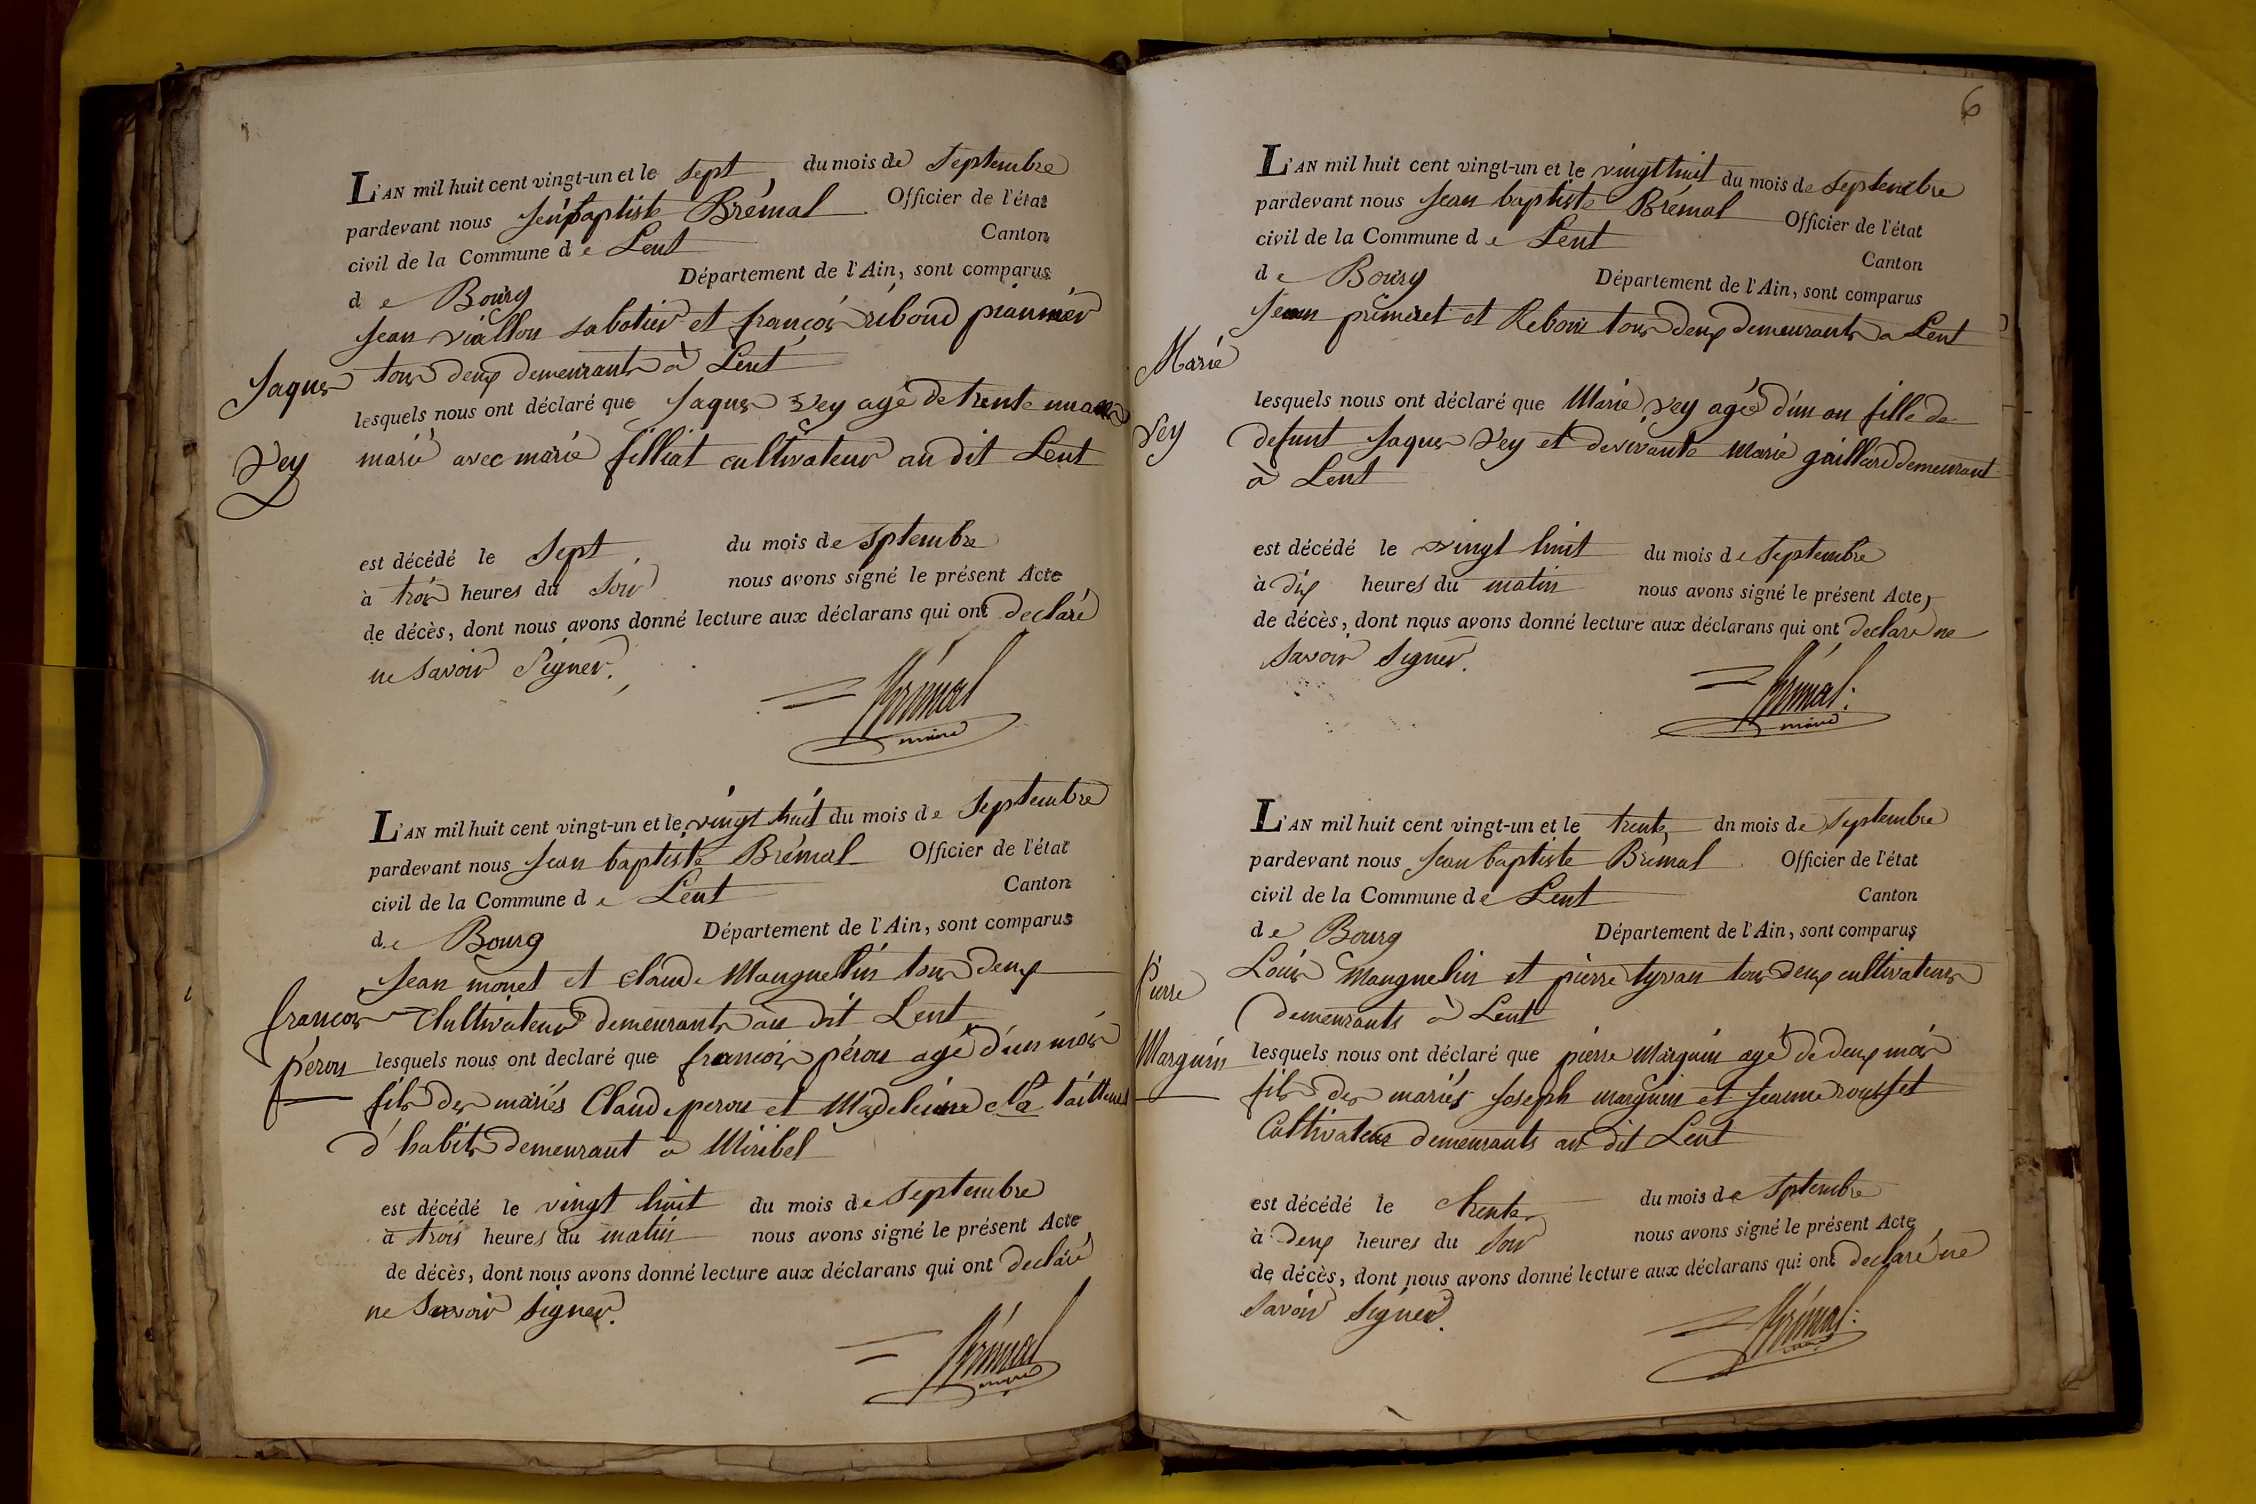 L'AN mil huit cent vingt-un et le sept du mois de Septembre
pardevant nous Jean baptiste Brémal Officier de l'état
civil de la Commune de Lent Canton
de Bourg Département de l'Ain, sont comparus
Jean viallon sabotier et françois riboud
tous deux demeurants à Lent
Jaques
lesquels nous ont déclaré que Jaques Vey agé de trente
Vey
marié avec marie filliat cultivateur au dit Lent
est décédé le Sept du mois de Sptembre
à trois heures du Soir nous avons signé le présent Acte
de décès, dont nous avons donné lecture aux déclarans qui ont declaré
ne savoir Signer.
Brémal
maire
L'AN mil huit cent vingt-un et le vingt huit du mois de Septembre
pardevant nous Jean baptiste Brémal Officier de l'état
civil de la Commune de Lent Canton
de Bourg Département de l'Ain, sont comparus
Jean monet et Claude Manguelin tous deux
francois
Cultivateurs demeurants au dit Lent
pérou
lesquels nous ont declaré que francois pérou agé d'un mois
fils des mariés Claude perou et Madeleine tailleur
d'habits demeurant a Miribel
est décédé le vingt huit du mois de Septembre
à trois heures du matin nous avons signé le présent Acte
de décès, dont nous avons donné lecture aux déclarans qui ont declaré
ne Savoir Signer.
Brémal
maire
6
L'AN mil huit cent vingt-un et le vingt huit du mois de Septembre
pardevant nous Jean baptiste Brémal Officier de l'état
civil de la Commune de Lent Canton
de Bourg Département de l'Ain, sont comparus
Jean et tous deux demeurants a Lent
Marie
lesquels nous ont déclaré que Marie Vey agée d'un an fille de
Vey
defunt Jaques Vey et de vivante Marie gaillard demeurant
à Lent
est décédé le vingt huit du mois de Septembre
à dix heures du matin nous avons signé le présent Acte,
de décès, dont nous avons donné lecture aux déclarans qui ont declaré ne
Savoir Signer.
Brémal
maire
L'AN mil huit cent vingt-un et le trente dn mois de Septembre
pardevant nous Jean baptiste Brémal Officier de l'état
civil de la Commune de Lent Canton
de Bourg Département de l'Ain, sont comparus
Louis Manguelin et pierre tyvan tous deux cultivateurs
Pierre
demeurants à Lent
Marguin
lesquels nous ont déclaré que pierre Marguin agé de deux mois
fils des mariés Joseph marguin et Jeanne rousset
Cultivateur demeurants au dit Lent
est décédé le trente du mois de Sptembre
à deux heures du Soir nous avons signé le présent Acte
de décès, dont nous avons donné lecture aux déclarans qui ont declaré ne
Savoir Signer.
Brémal
maire